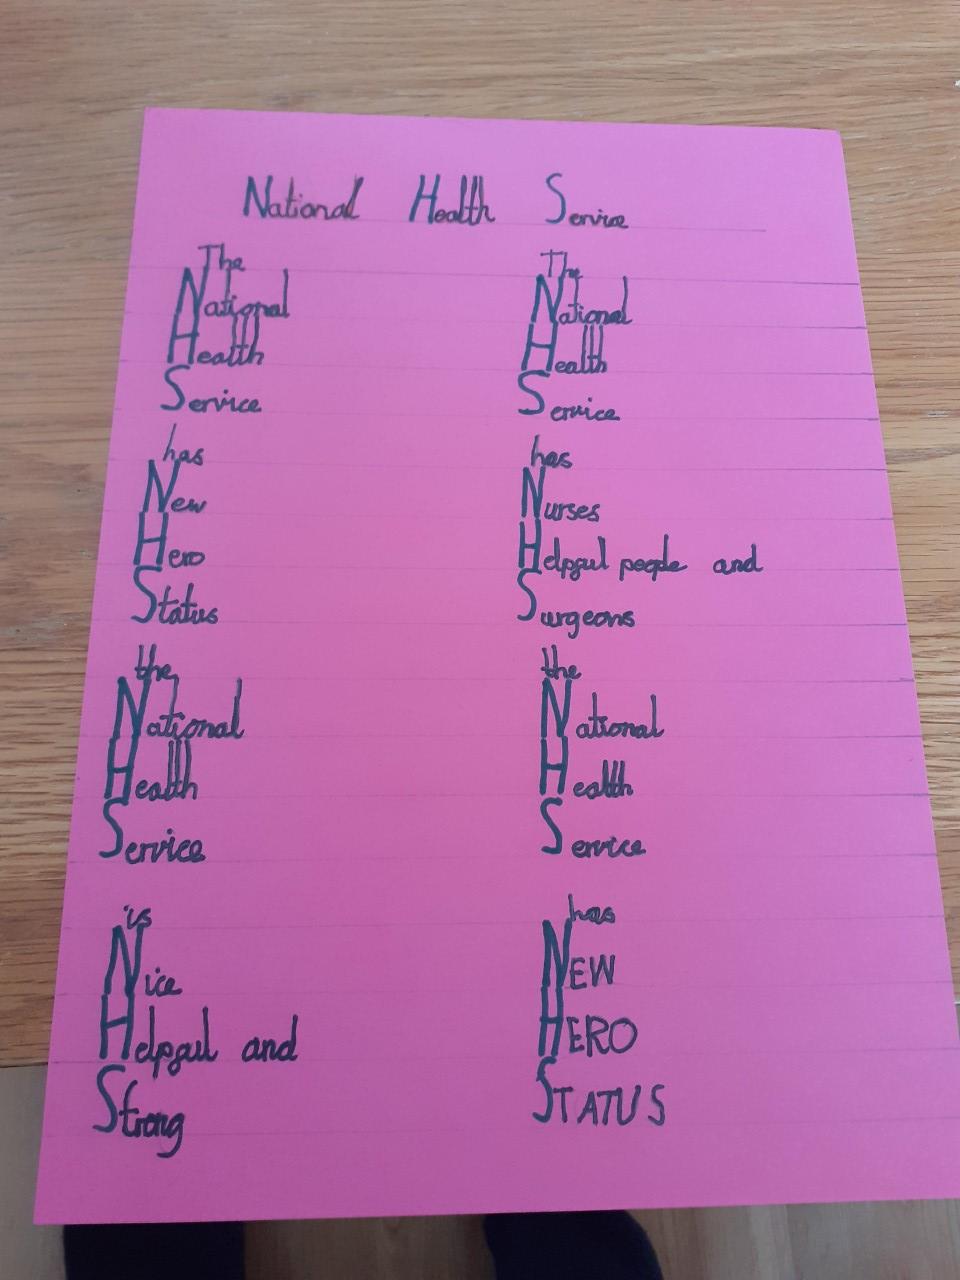 National Health Service
The
National
Health
Service
has
New
Hero
Status
the
National
Health
Service
is
Nice
Helpful and
Strong
The
National
Health
Service
has
Nurses
Helpful people and
Surgeons
the
National
Health
Service
has
NEW
HERO
STATUS